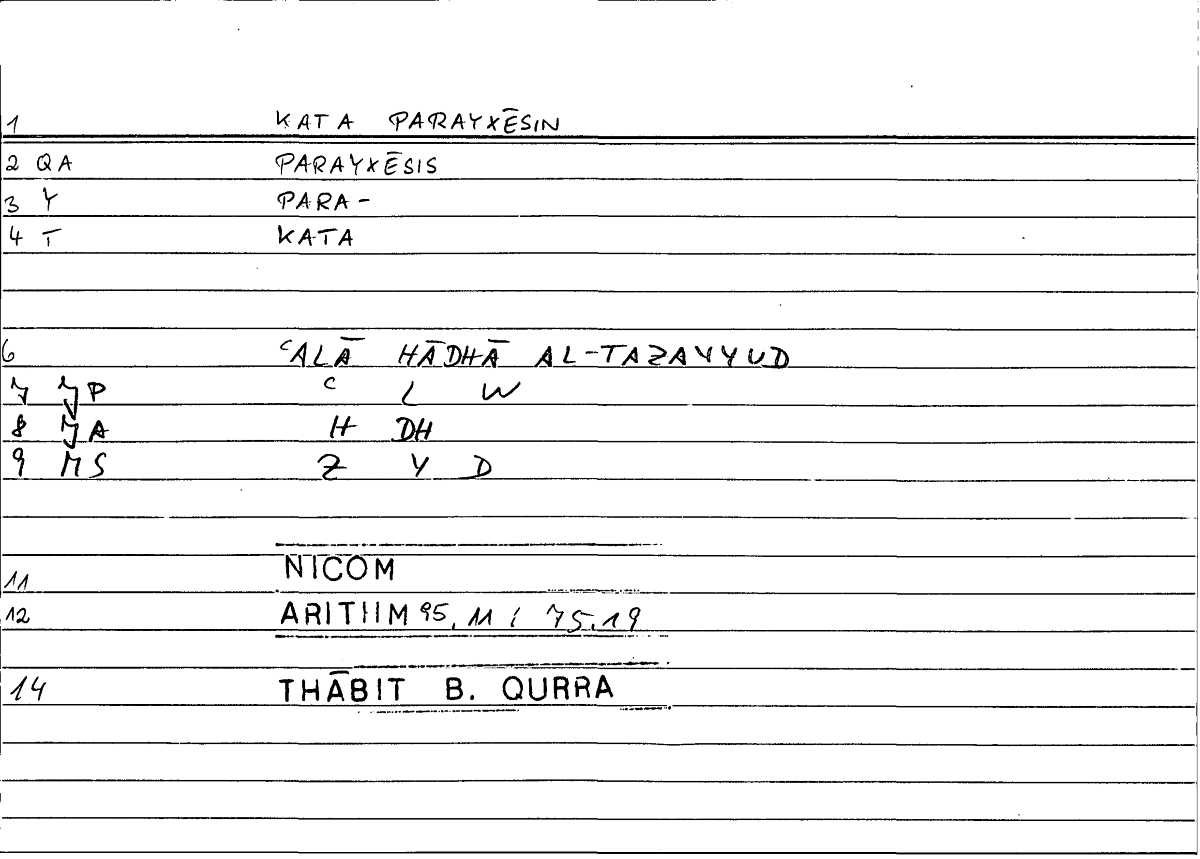 1 KATA PARAYXĒSIN
2 QA PARAYXĒSIS
3 Y PARA-
4 T KATA
6 ʿALĀ HĀDHĀ AL-TAZAYYUD
7 JP ʿ L W
8 JA H DH
9 MS Z Y D
11 NICOM
12 ARITHM 95,11 / 75,19
14 THĀBIT B. QURRA